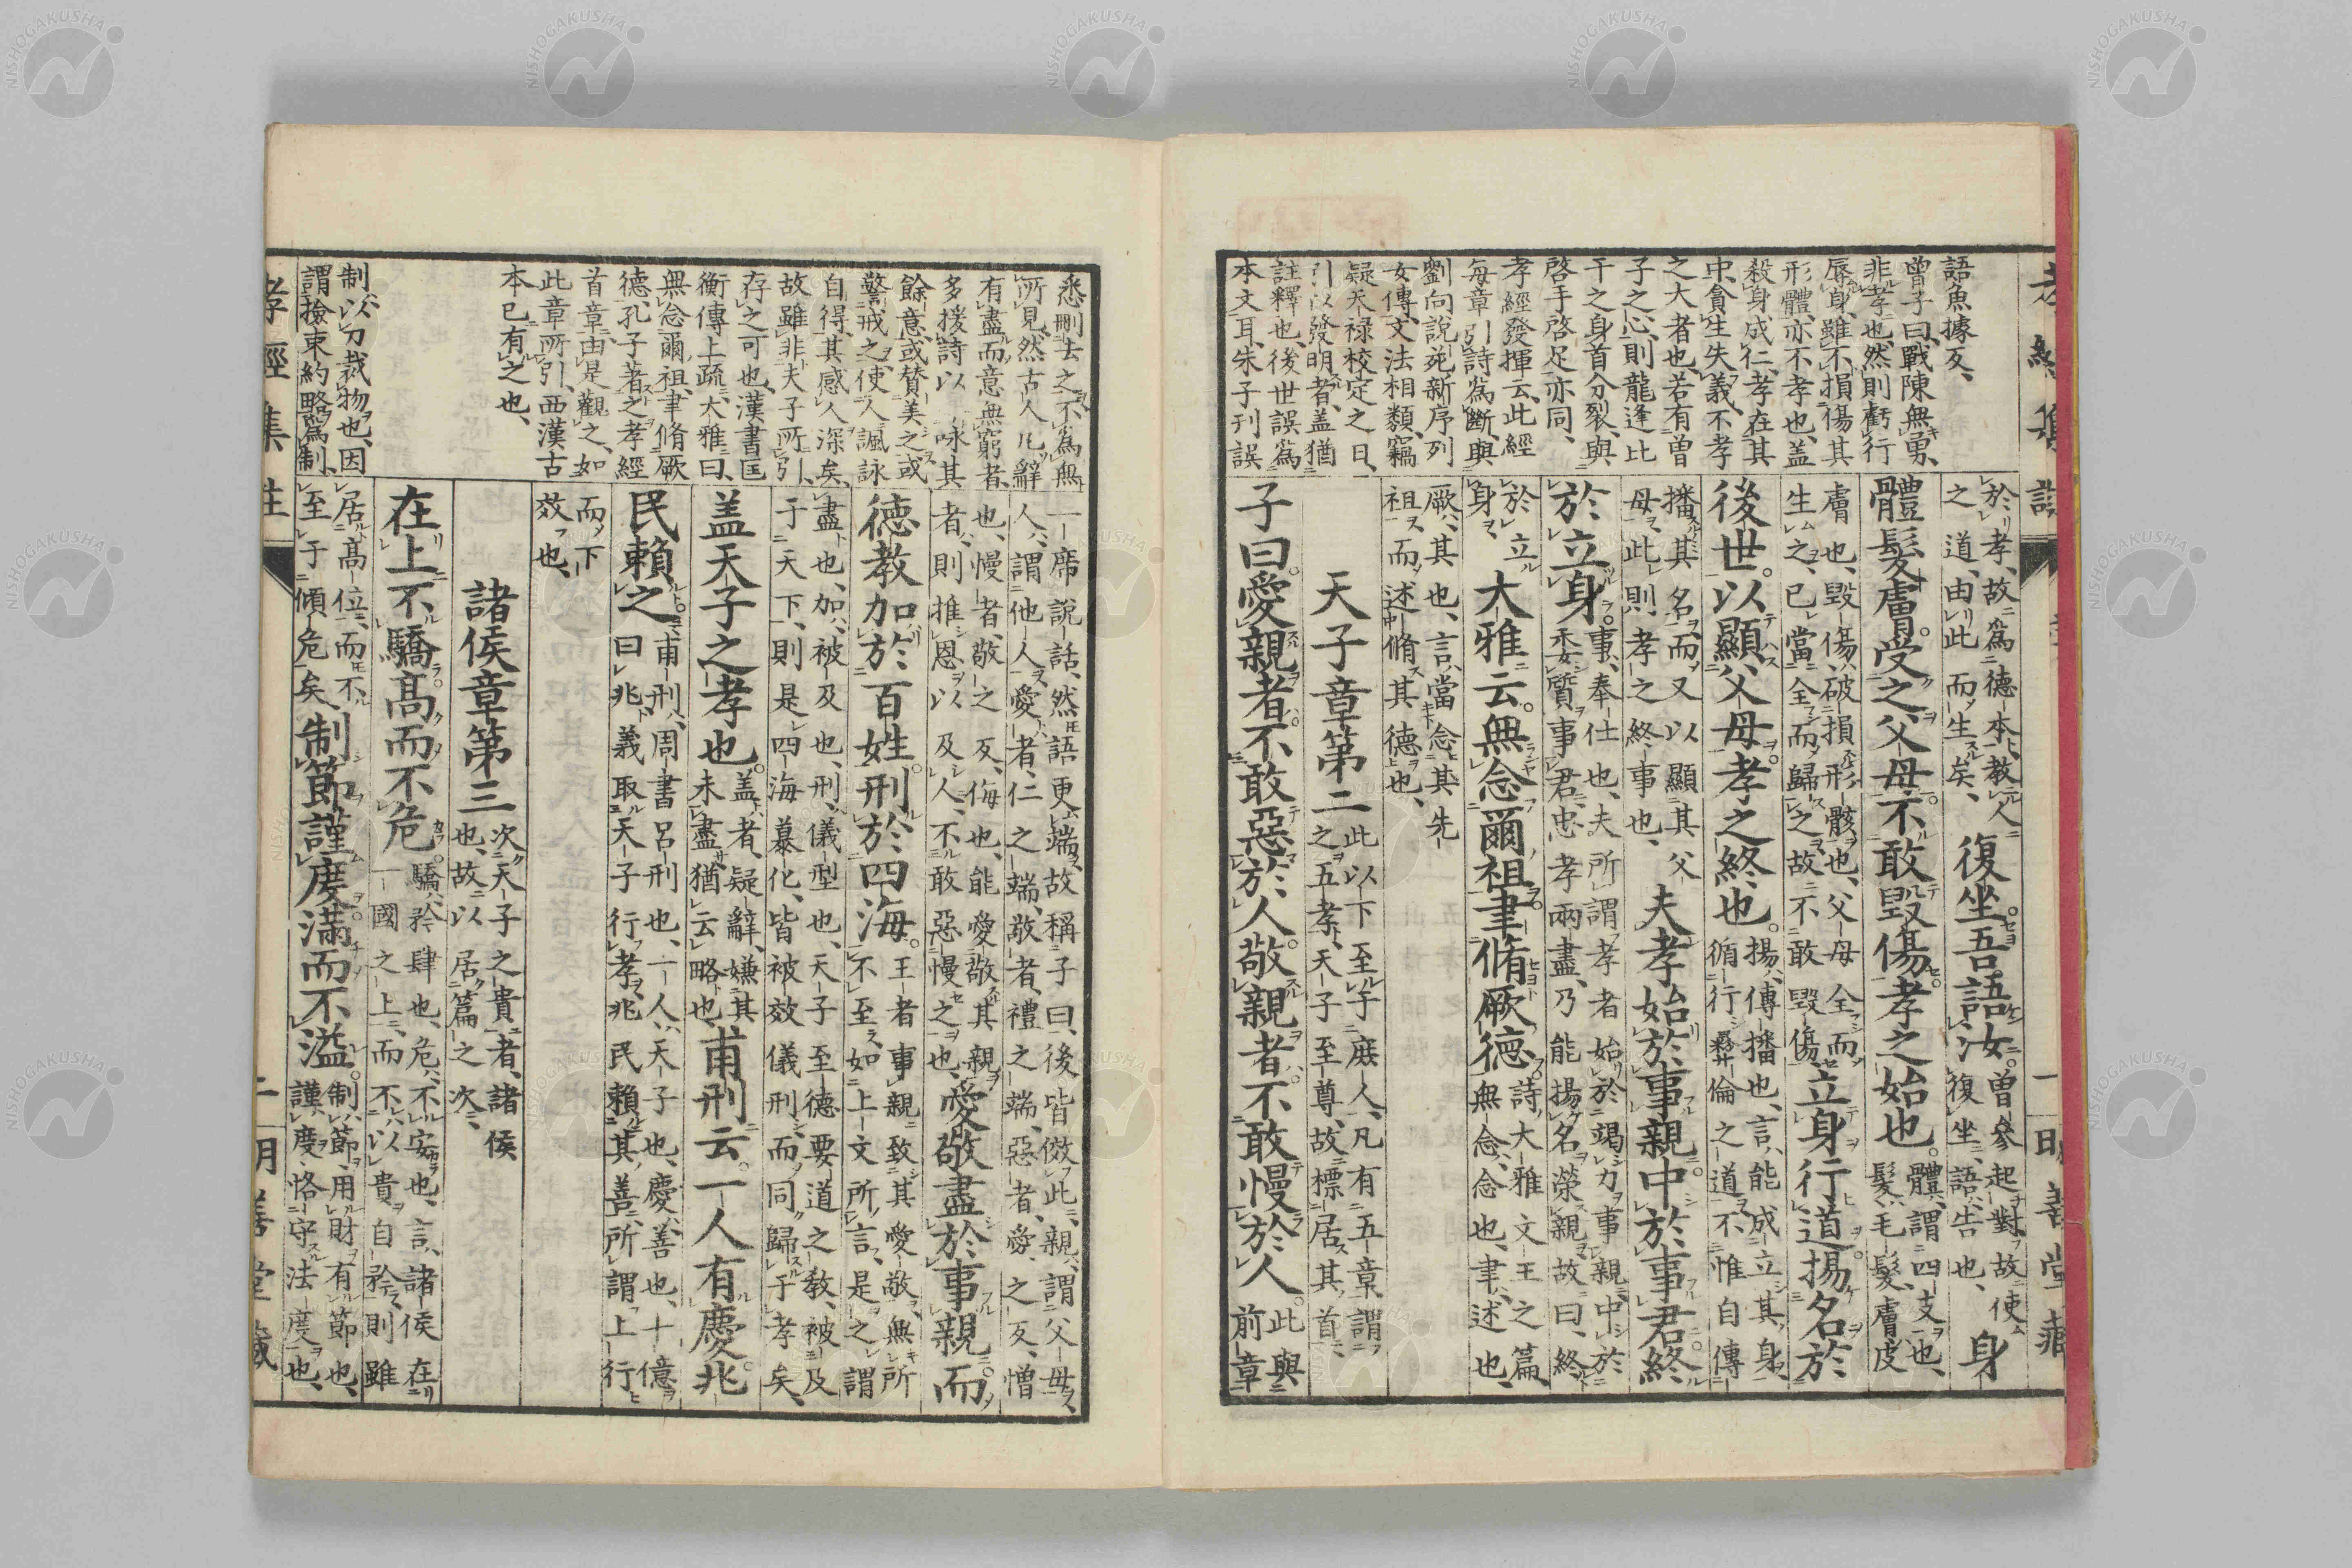 語魚據反、
曽子曰、戰陳無勇、
非孝也、然則虧行
辱身、雖不損傷其
形體、亦不孝也、盖
殺身成仁、孝在其
中、貪生失義、不孝
之大者也、若有曽
子之心、則龍逢比
干之身首分裂、與
啓手啓足亦同、
孝經發揮云、此經
每章引詩爲斷、與
劉向說苑新序列
女傳、文法相類、竊
疑天禄校定之日、
引以發明者、盖猶
註釋也、後世誤爲
本文耳、朱子刊誤
於孝、故爲德本、教人
之道、由此而生矣、
復坐吾語汝
曽參起對、故使
復坐、語告也、
身
體髮膚受之父母不敢毀傷孝之始也
體、謂四支也、
髮、毛髮、膚皮
膚也、毀傷、破損形骸也、父母全而
生之、已當全而歸之、故不敢毀傷、
立身行道揚名於
後世以顯父母孝之終也
揚、傳播也、言、能成立其身、
循行彛倫之道、不惟自傳
播其名、而又以顯其父
母、此則孝之終事也、
夫孝始於事親中於事君終
於立身
事、奉仕也、夫所謂孝者、始於竭力事親、中於
委質事君、忠孝兩盡、乃能揚名榮親、故曰、終
於立
身
大雅云無念爾祖聿脩厥德
詩大雅文王之篇、
無念、念也、聿、述也、
厥、其也、言、當念其先
祖、而述脩其德也、
天子章第二
此以下至于庶人、凡有五章、謂
之五孝、天子至尊、故標居其首、
子曰愛親者不敢惡於人敬親者不敢慢於人
此與
前章
悉刪去之、不爲無
所見、然古人凡辭
有盡而意無窮者、
多援詩以咏其
餘意、或賛美之、或
警戒之、使人諷詠
自得、其感人深矣、
故雖非夫子所引、
存之可也、漢書匡
衡傳上疏、大雅曰、
無念爾祖、聿脩厥
德、孔子著之孝經
首章、由是觀之、如
此章所引、西漢古
本已有之也、
制以刀裁物也、因
謂撿束約略爲制、
一席說話、然語更端、故稱子曰、後皆倣此、親、謂父母、
人、謂他人、愛者、仁之端、敬者、禮之端、惡者、愛之反、憎
也、慢者、敬之反、侮也、能愛敬其親
者、則推恩以及人、不敢惡慢之也、
愛敬盡於事親而
德教加於百姓刑於四海
王者事親、致其愛敬、無所
不至、如上文所言、是之謂
盡也、加、被及也、刑、儀型也、天子至德要道之教、被及
于天下、則是四海慕化、皆被效儀刑、而同歸于孝矣、
盖天子之孝也
盖者、疑辭、嫌其
未盡、猶云略也、
甫刑云一人有慶兆
民賴之
甫刑、周書呂刑也、一人、天子也、慶、善也、十億
曰兆、義取天子行孝、兆民賴其善、所謂上行
而下
效也、
諸侯章第三
次天子之貴者、諸侯
也、故以居篇之次、
在上不驕高而不危
驕、矜肆也、危、不安也、言、諸侯在
一國之上、而不以貴自矜、則雖
居高位、而不
至于傾危矣、
制節謹度滿而不溢
制節、用財有節也、
謹度、恪守法度也、
孝經集註
二
明善堂藏